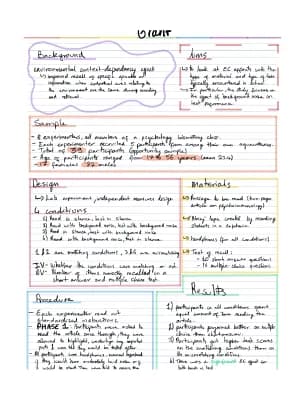 Grant
Background
environmental context-dependency effect
↳ improved recall of specific episodes or
information when contextual cues relating to
the environment are the same during encoding
and retrieval.
Aims
↳ To look at EC effects with the
type of material and type of tests
typically encountered in school.
↳ In particular, the study focuses on
the effect of background noise on
test performance.
Sample
- 8 experimenters, all members of a psychology laboratory class.
- Each experimenter recruited 5 participants from among their own acquaintances.
- Total of 39 participants (opportunity sample)
- Age of participants ranged from 17 to 56 years (mean 23.4)
- 17 females 22 males
Design
↳ Lab experiment, independent measures design
4 conditions
1) Read in silence, test in silence
2) Read with background noise, test with background noise
3) Read in silence, test with background noise
4) Read with background noise, test in silence.
1 & 2 are matching conditions, 3 & 4 are mismatching
IV - Whether the conditions were matching or not
DV - Number of items correctly recalled in a
short answer and multiple choice test.
Materials
↳ Passage to be read (two page
article on psychoimmunology)
↳ 'Noisy' tape created by recording
students in a cafeteria
↳ headphones (for all conditions)
↳ Test of recall:
- 10 short answer questions
- 16 multiple choice questions
Procedure
- Each experimenter read out
standardised instructions.
PHASE 1: Participants were asked to
read the article once though, they were
allowed to highlight,
- All participants wore headphones,
Results
1) participants in all conditions spent
equal amount of time reading the
article.
2) participants performed better on multiple
choice than short answer.
3) Participants got higher test scores
in the matching conditions than in
the mismatching condition.
4) There was a significant EC effect on